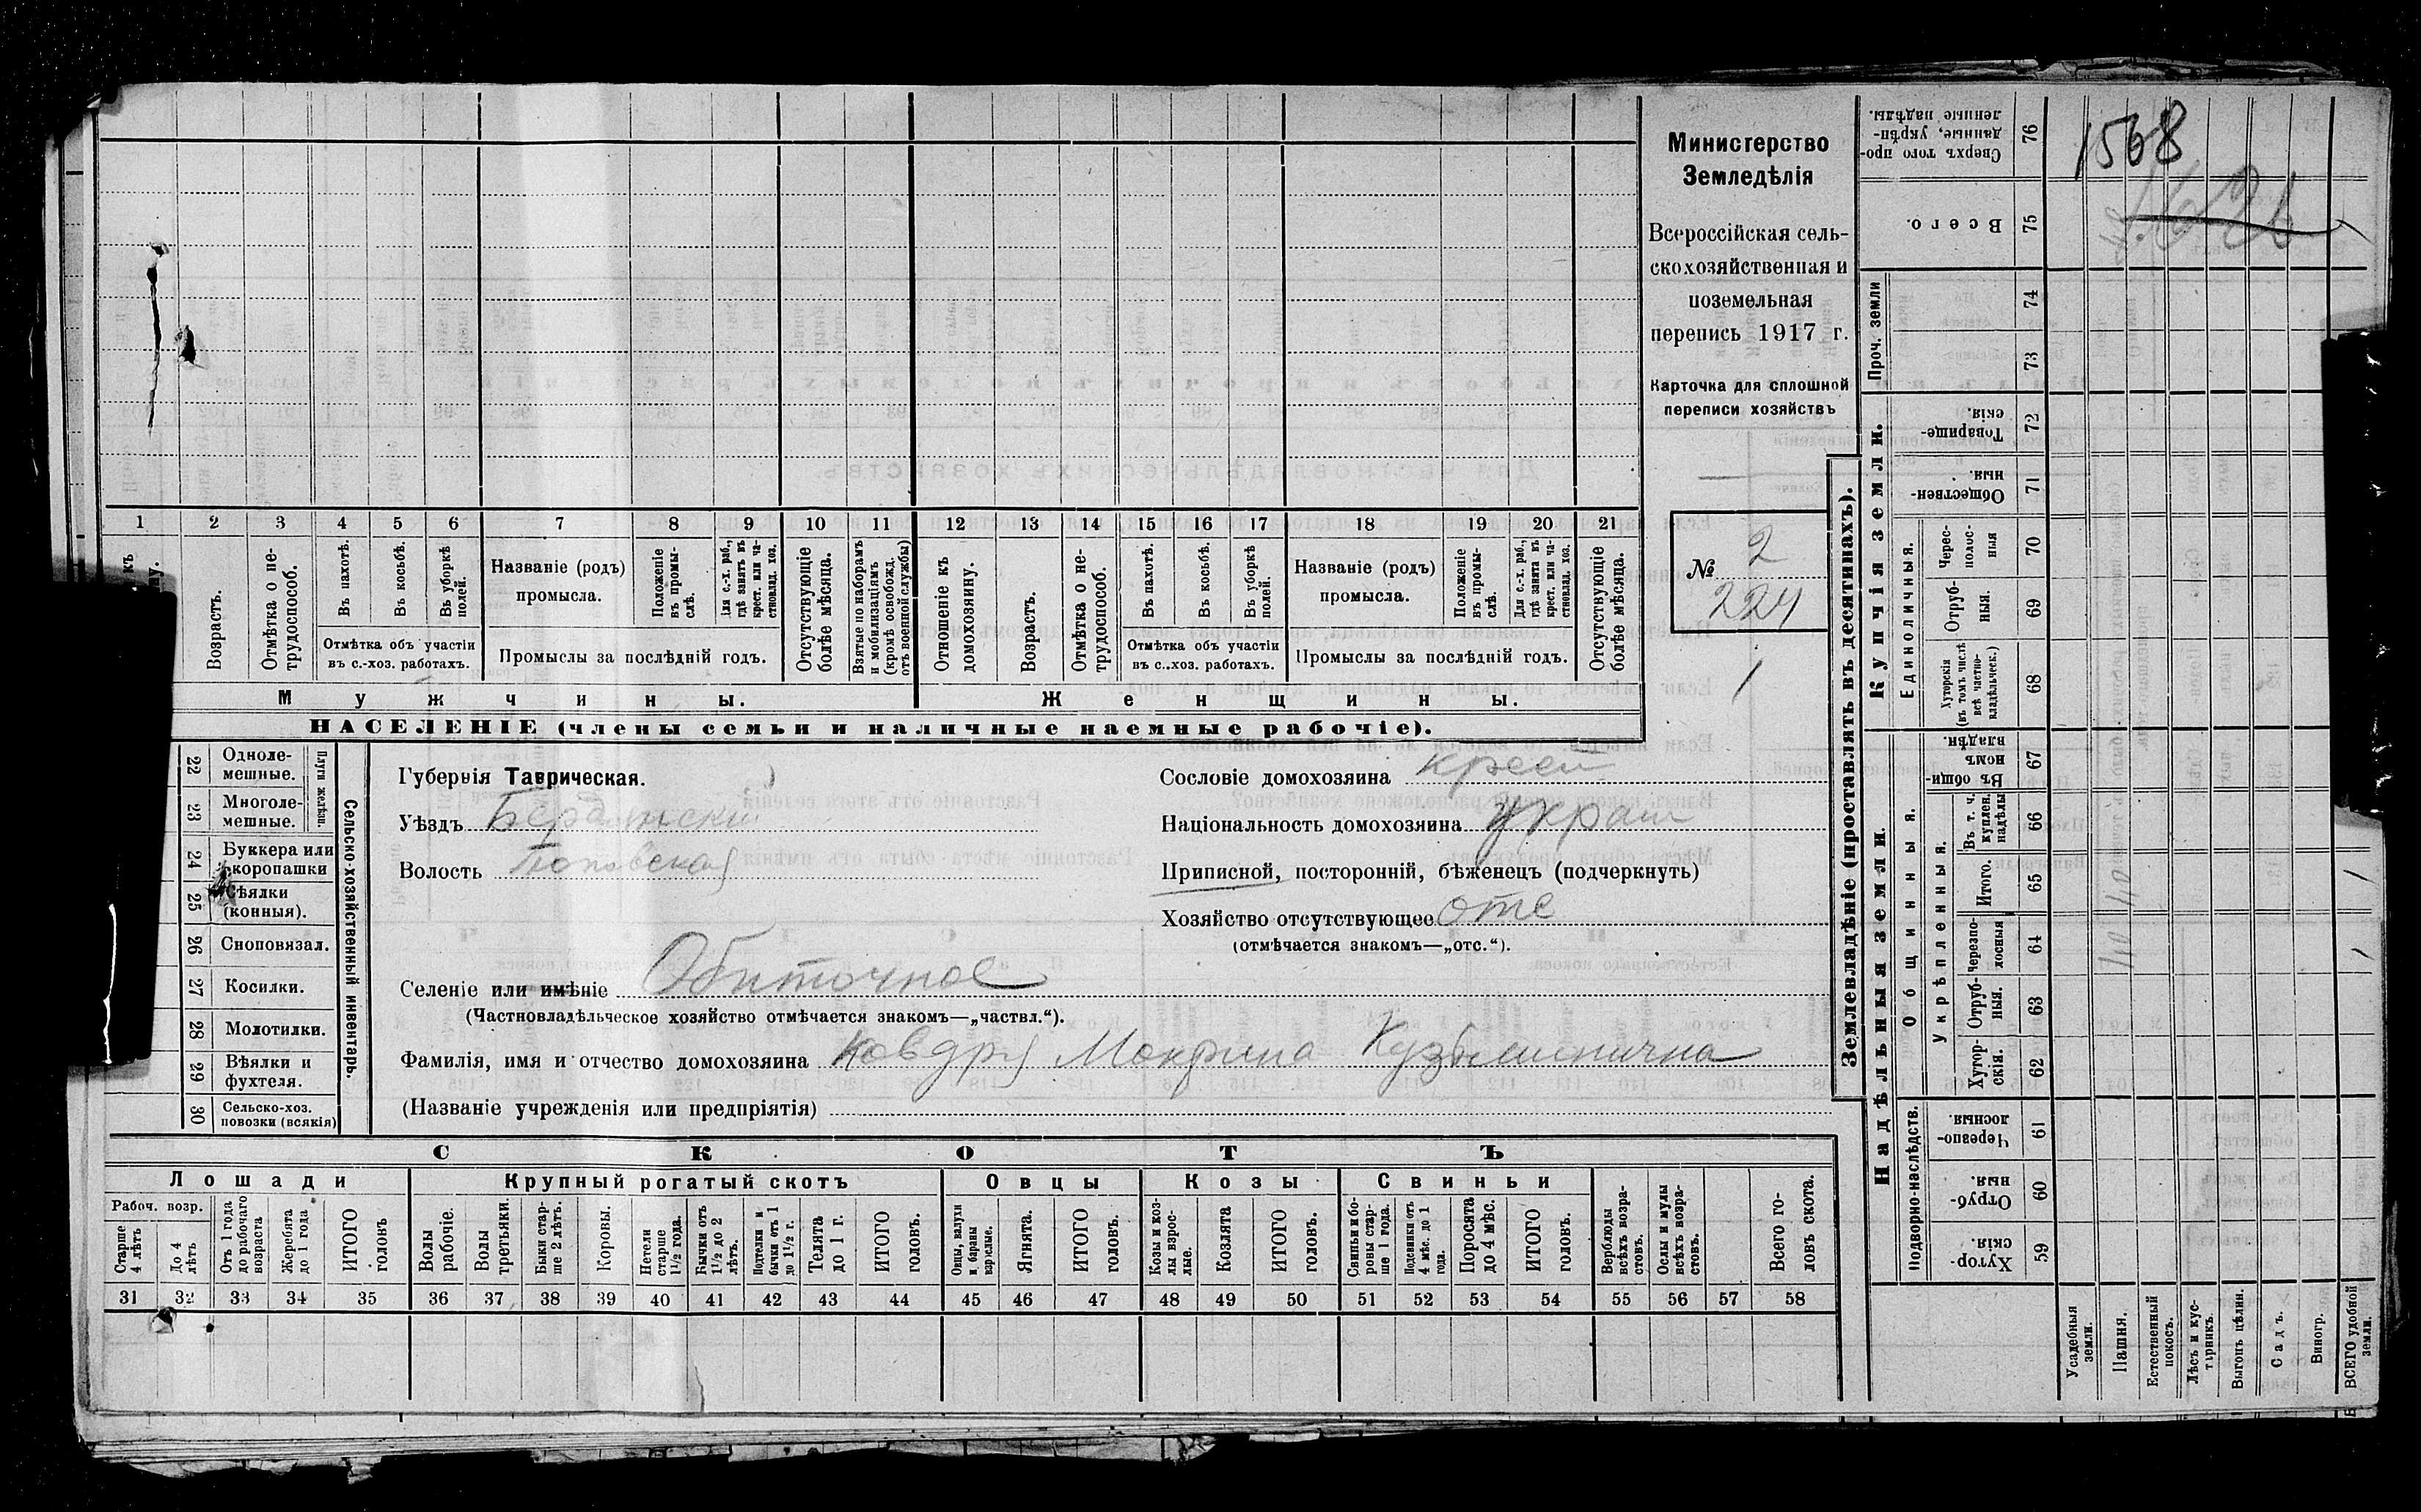 1568
1626
Министерство
Земледѣлія
Всероссійская сель-
скохозяйственная и
поземельная
перепись 1917 г.
Карточка для сплошной
переписи хозяйствъ
№ 2
224
1
1 2 3 4 5 6 7 8 9 10 11 12 13 14 15 16 17 18 19 20 21
Возрастъ.
Отмѣтка о не-
трудоспособ.
Въ пахотѣ.
Въ косьбѣ.
Въ уборкѣ
полей.
Отмѣтка объ участіи
въ с.-хоз. работахъ.
Названіе (родъ)
промысла.
Положеніе
въ промы-
слѣ.
Для с.-х. раб.,
гдѣ занятъ въ
крест. или ча-
стновлад. хоз.
Промыслы за послѣдній годъ.
Отсутствующіе
болѣе мѣсяца.
Взятые по наборамъ
и мобилизаціямъ
(кромѣ освобожд.
отъ военной службы)
Отношеніе къ
домохозяину.
Возрастъ.
Отмѣтка о не-
трудоспособ.
Въ пахотѣ.
Въ косьбѣ.
Въ уборкѣ
полей.
Отмѣтка объ участіи
въ с.-хоз. работахъ.
Названіе (родъ)
промысла.
Положеніе
въ промы-
слѣ.
Для с.-х. раб.,
гдѣ занята въ
крест. или ча-
стновлад. хоз.
Промыслы за послѣдній годъ.
Отсутствующіе
болѣе мѣсяца.
Мужчины.
Женщины.
НАСЕЛЕНІЕ (члены семьи и наличные наемные рабочіе).
22 Одноле-
мешные.
23 Многоле-
мешные.
Плуги желѣзн.
24 Буккера или
скоропашки
25 Сѣялки
(конныя).
26 Сноповязал.
27 Косилки.
28 Молотилки.
29 Вѣялки и
фухтеля.
30 Сельско-хоз.
повозки (всякія)
Сельско-хозяйственный инвентарь.
Губернія Таврическая.
Уѣздъ Бердянскій
Волость Поповская
Сословіе домохозяина крест
Національность домохозяина украин
Приписной, посторонній, бѣженецъ (подчеркнуть)
Хозяйство отсутствующее отс
(отмѣчается знакомъ—„отс.“).
Селеніе или имѣніе Обиточное
(Частновладѣльческое хозяйство отмѣчается знакомъ—„частвл.“).
Фамилія, имя и отчество домохозяина Ковдря Мокрина Кузьминична
(Названіе учрежденія или предпріятія)
СКОТЪ
Лошади
Крупный рогатый скотъ
Овцы
Козы
Свиньи
Рабоч. возр.
Старше
4 лѣтъ
До 4
лѣтъ
Отъ 1 года
до рабочаго
возраста
Жеребята
до 1 года
ИТОГО
головъ
Волы
рабочіе.
Волы
третьяки.
Быки стар-
ше 2 лѣтъ.
Коровы.
Нетели
старше
1½ года.
Бычки отъ
1½ до 2
лѣтъ.
Подтелки и
бычки отъ 1
до 1½ г.
Телята
до 1 г.
ИТОГО
головъ.
Овцы, валухи
и бараны
взрослые.
Ягнята.
ИТОГО
головъ.
Козы и коз-
лы взрос-
лые.
Козлята
ИТОГО
головъ.
Свиньи и бо-
ровы стар-
ше 1 года.
Подсвинки отъ
4 мѣс. до 1
года.
Поросята
до 4 мѣс.
ИТОГО
головъ.
Верблюды
всѣхъ возра-
стовъ.
Ослы и мулы
всѣхъ возра-
стовъ.
Всего го-
ловъ скота.
31 32 33 34 35 36 37 38 39 40 41 42 43 44 45 46 47 48 49 50 51 52 53 54 55 56 57 58
Землевладѣніе (проставлять въ десятинахъ).
Купчія земли.
Надѣльныя земли.
Сверхъ того про-
данные, укрѣп-
ленные надѣлы.
76
Всего.
75
Проч. земли
74
73
Товарище-
скія.
72
Обществен-
ныя.
71
Единоличныя.
Черес-
полос-
ныя
70
Отруб-
ныя.
69
Хуторскія
(въ томъ числѣ
всѣ частно-
владѣльческ.)
68
Общинныя.
Въ общин-
номъ
владѣн.
67
Укрѣпленныя.
Въ т. ч.
куплен.
надѣлы
66
Итого.
65
Черезпо-
лосныя
64
Отруб-
ныя.
63
Хутор-
скія.
62
Подворно-наслѣдств.
Черезпо-
лосныя
61
Отруб-
ныя.
60
Хутор-
скія.
59
Усадебныя
земли.
Пашня.
Естественный
покосъ.
Лѣсъ и кус-
тарникъ.
Выгонъ цѣлин.
Садъ.
Виногр.
ВСЕГО удобной
земли.